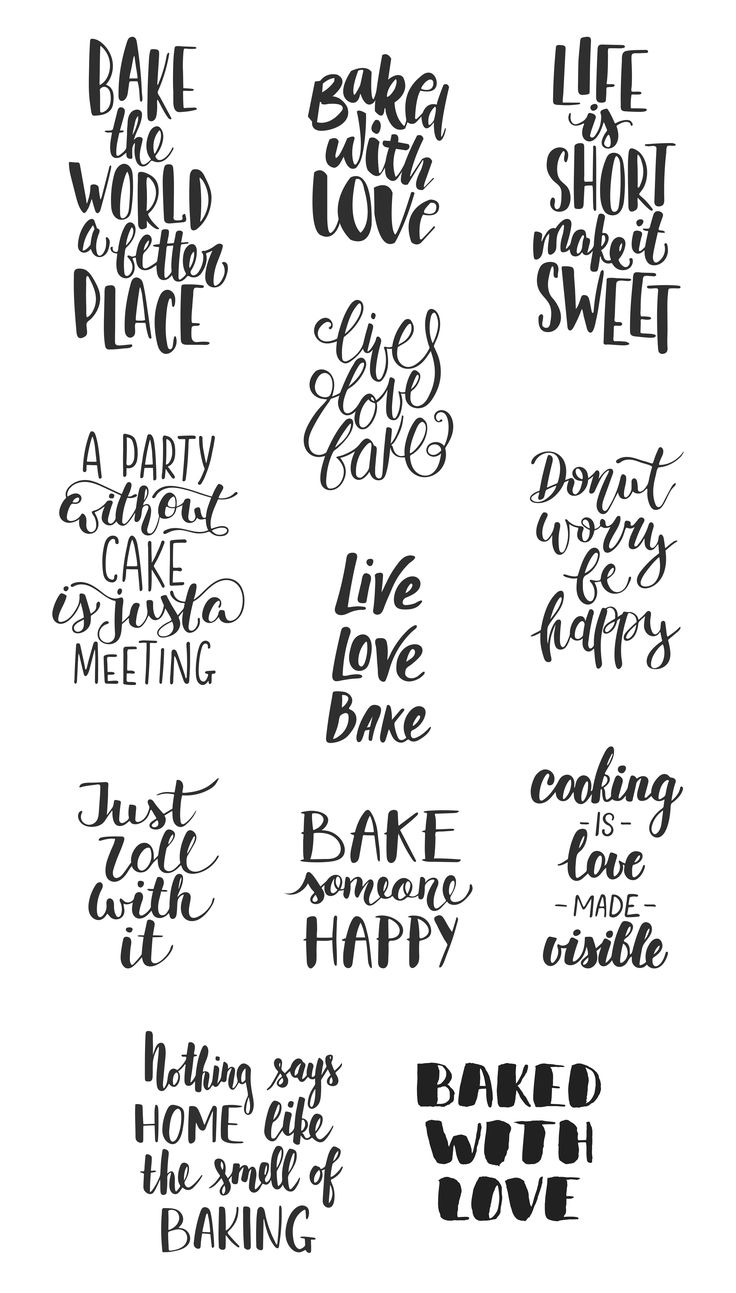 BAKE
the
WORLD
a better
PLACE
Baked
with
LOVe
LIFE
is
SHORT
make it
SWEET
live
love
bake
A PARTY
without
CAKE
is just a
MEETING
Donut
worry
be
happy
Live
Love
BAKe
Just
roll
with
it
BAKE
someone
HAPPY
cooking
-IS-
love
-MADE-
visible
Nothing says
HOME like
the smell of
BAKING
BAKED
WITH
LOVE